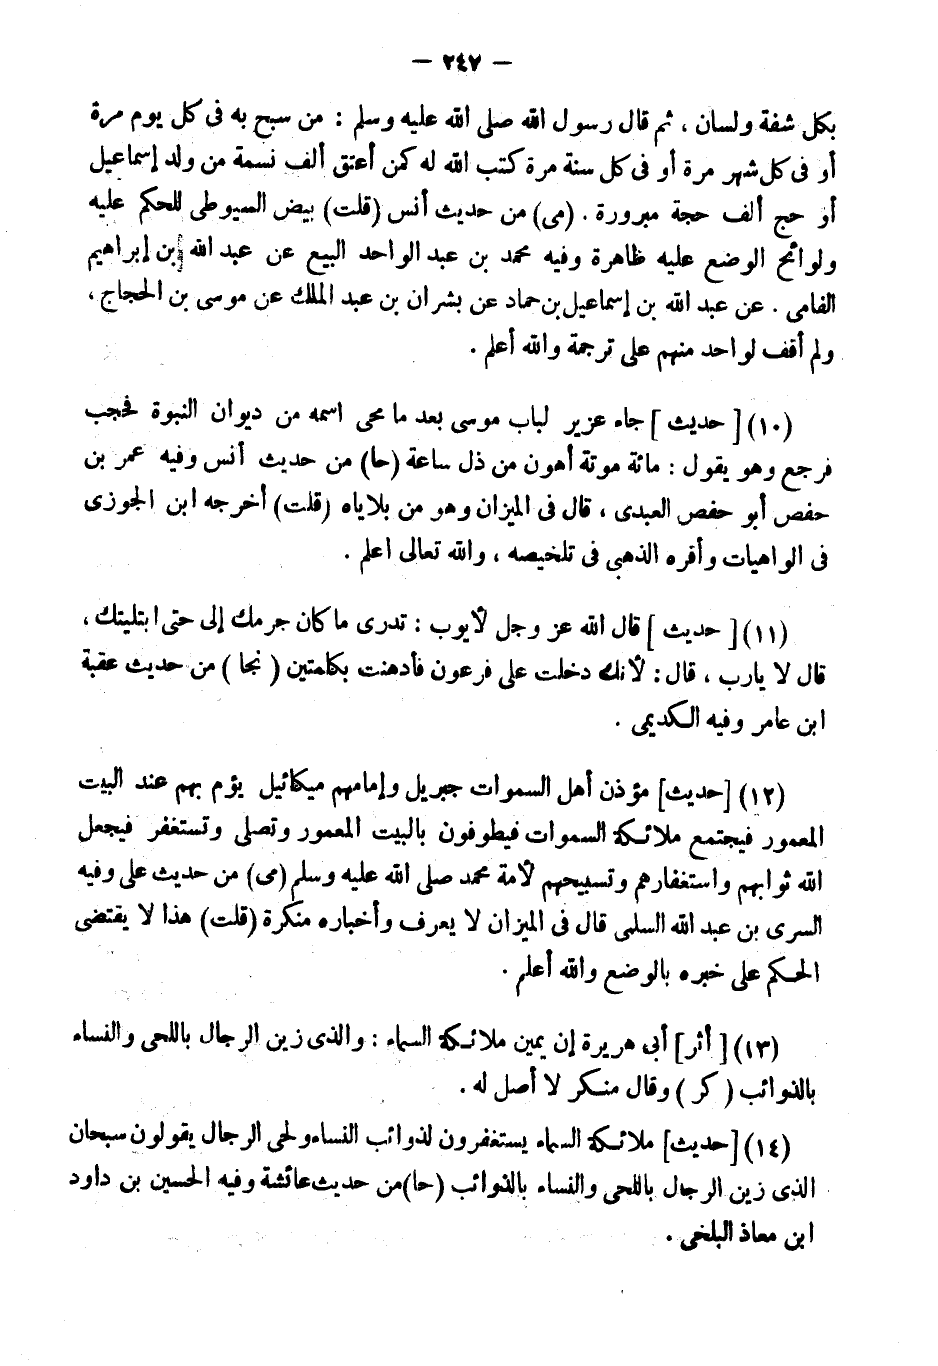 — ٢٤٧ —
بكل شفة ولسان ، ثم قال رسول الله صلى الله عليه وسلم : من سبح به فى كل يوم مرة
أو فى كل شهر مرة أو فى كل سنة مرة كتب الله له كمن أعتق ألف نسمة من ولد إسماعيل
أو حج ألف حجة مبرورة . (مى) من حديث أنس (قلت) بيض السيوطى للحكم عليه
ولوائح الوضع عليه ظاهرة وفيه محمد بن عبد الواحد البيع عن عبد الله بن إبراهيم
الفامى . عن عبد الله بن إسماعيل بن حماد عن بشران بن عبد الملك عن موسى بن الحجاج ،
ولم أقف لواحد منهم على ترجمة والله أعلم .
(١٠) [ حديث ] جاء عزير لباب موسى بعد ما محى اسمه من ديوان النبوة فحجب
فرجع وهو يقول : مائة موتة أهون من ذل ساعة (حا) من حديث أنس وفيه عمر بن
حفص أبو حفص العبدى ، قال فى الميزان وهو من بلاياه (قلت) أخرجه ابن الجوزى
فى الواهيات وأقره الذهبى فى تلخيصه ، والله تعالى اعلم .
(١١) [ حديث ] قال الله عز وجل لأيوب : تدرى ما كان جرمك إلى حتى ابتليتك ،
قال لا يارب ، قال : لأنك دخلت على فرعون فأدهنت بكلمتين ( نجا ) من حديث عقبة
ابن عامر وفيه الكديمى .
(١٢) [حديث] مؤذن أهل السموات جبريل وإمامهم ميكائيل يؤم بهم عند البيت
المعمور فيجتمع ملائكة السموات فيطوفون بالبيت المعمور وتصلى وتستغفر فيجعل
الله ثوابهم واستغفارهم وتسبيحهم لأمة محمد صلى الله عليه وسلم (مى) من حديث على وفيه
السرى بن عبد الله السلمى قال فى الميزان لا يعرف وأخباره منكرة (قلت) هذا لا يقتضى
الحكم على خبره بالوضع والله أعلم .
(١٣) [ أثر ] أبى هريرة إن يمين ملائكة السماء : والذى زين الرجال باللحى والنساء
بالذوائب ( كر ) وقال منكر لا أصل له .
(١٤) [حديث] ملائكة السماء يستغفرون لذوائب النساء ولحى الرجال يقولون سبحان
الذى زين الرجال باللحى والنساء بالذوائب (حا) من حديث عائشة وفيه الحسين بن داود
ابن معاذ البلخى .